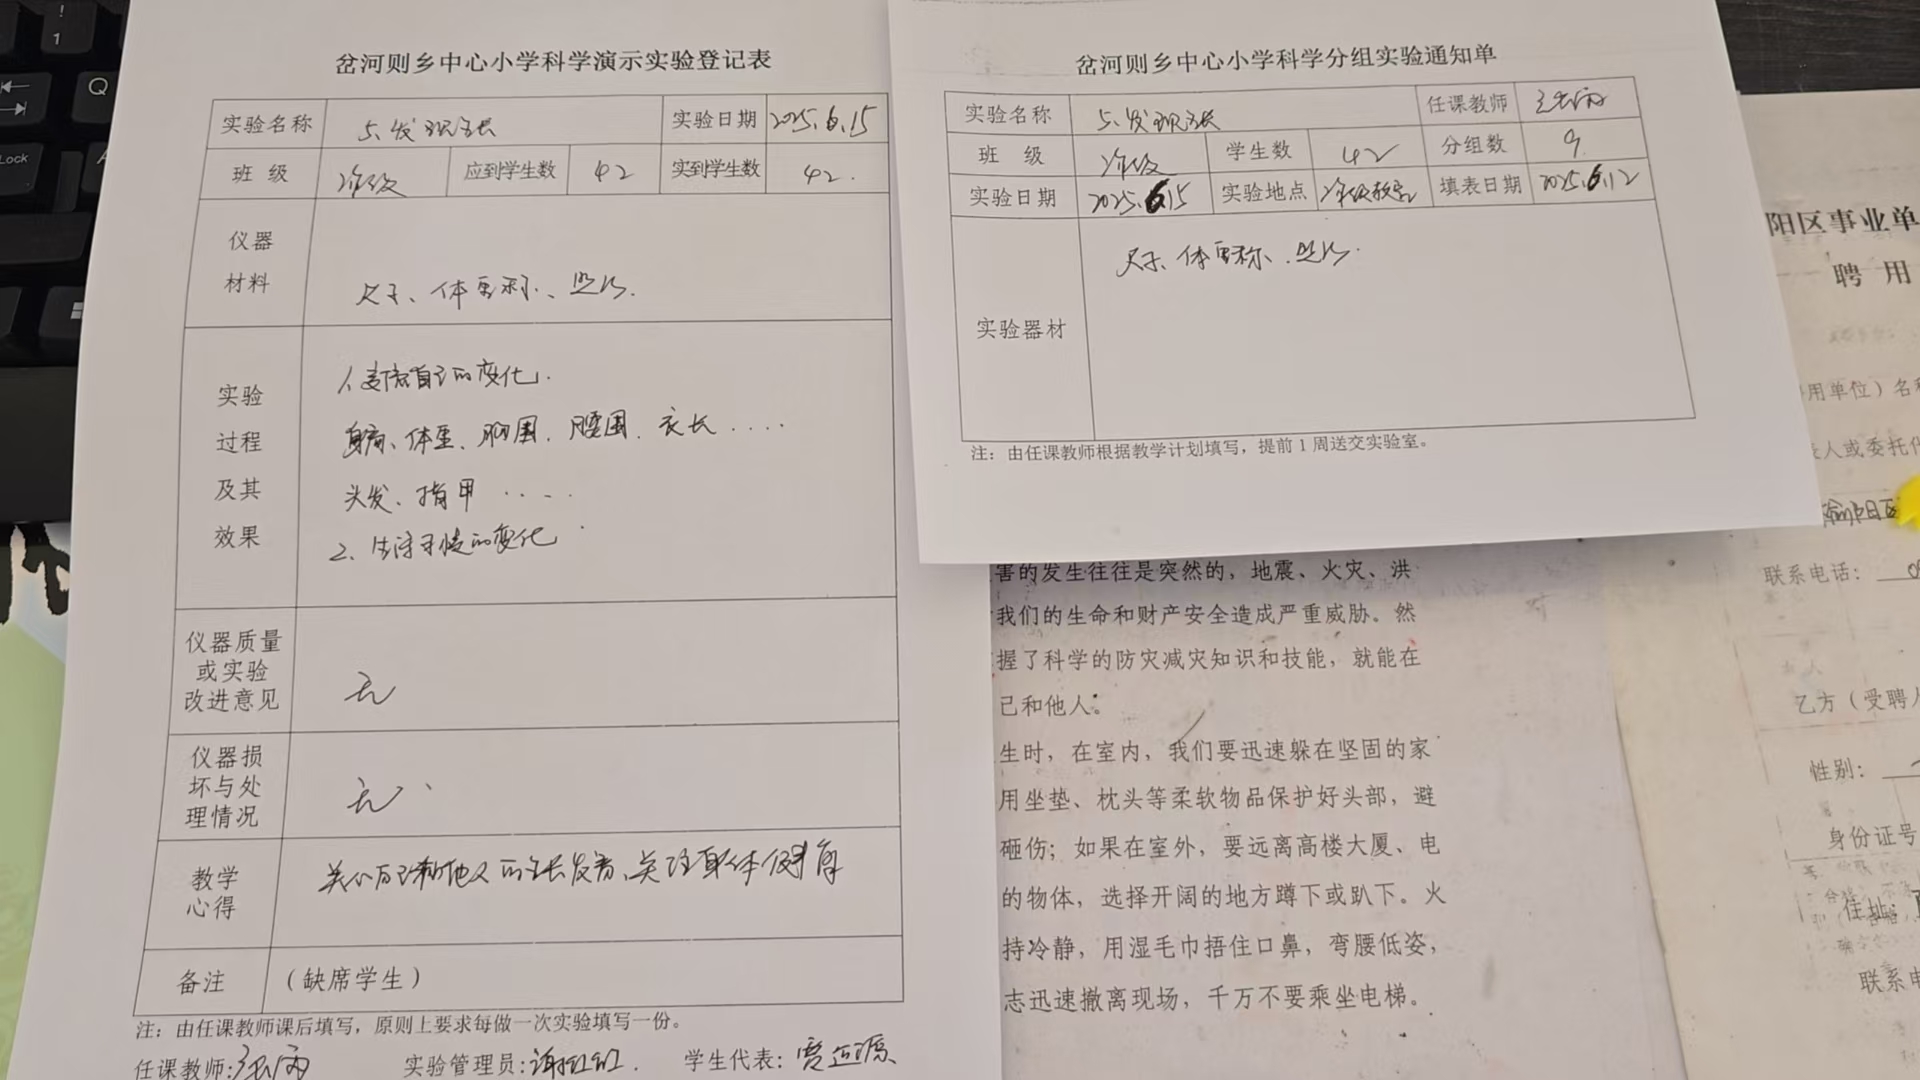 岔河则乡中心小学科学演示实验登记表
实验名称 5、发现生长 实验日期 2025.6.15
班 级 二年级 应到学生数 42 实到学生数 42.
仪器
材料
尺子、体重称、照片.
实验
过程
及其
效果
1、身体自己的变化.
身高、体重、胸围、腰围、衣长....
头发、指甲....
2、生活习惯的变化
仪器质量
或实验
改进意见
无
仪器损
坏与处
理情况
无
教学
心得
关心自己和他人的生长发育、关注身体健康
备注 (缺席学生)
注：由任课教师课后填写，原则上要求每做一次实验填写一份。
任课教师: 实验管理员:谢红红. 学生代表:
岔河则乡中心小学科学分组实验通知单
实验名称 5、发现生长 任课教师
班 级 二年级 学生数 42 分组数 9
实验日期 2025.6.15 实验地点 二年级教室 填表日期 2025.6.12
实验器材
尺子、体重称、照片.
注：由任课教师根据教学计划填写，提前1周送交实验室。
害的发生往往是突然的，地震、火灾、洪
我们的生命和财产安全造成严重威胁。然
握了科学的防灾减灾知识和技能，就能在
己和他人。
生时，在室内，我们要迅速躲在坚固的家
用坐垫、枕头等柔软物品保护好头部，避
砸伤；如果在室外，要远离高楼大厦、电
的物体，选择开阔的地方蹲下或趴下。火
持冷静，用湿毛巾捂住口鼻，弯腰低姿，
志迅速撤离现场，千万不要乘坐电梯。
阳区事业单
聘 用
用单位）名称
人或委托代
榆阳区
联系电话：
乙方（受聘人
性别：
身份证号
住址：
联系电